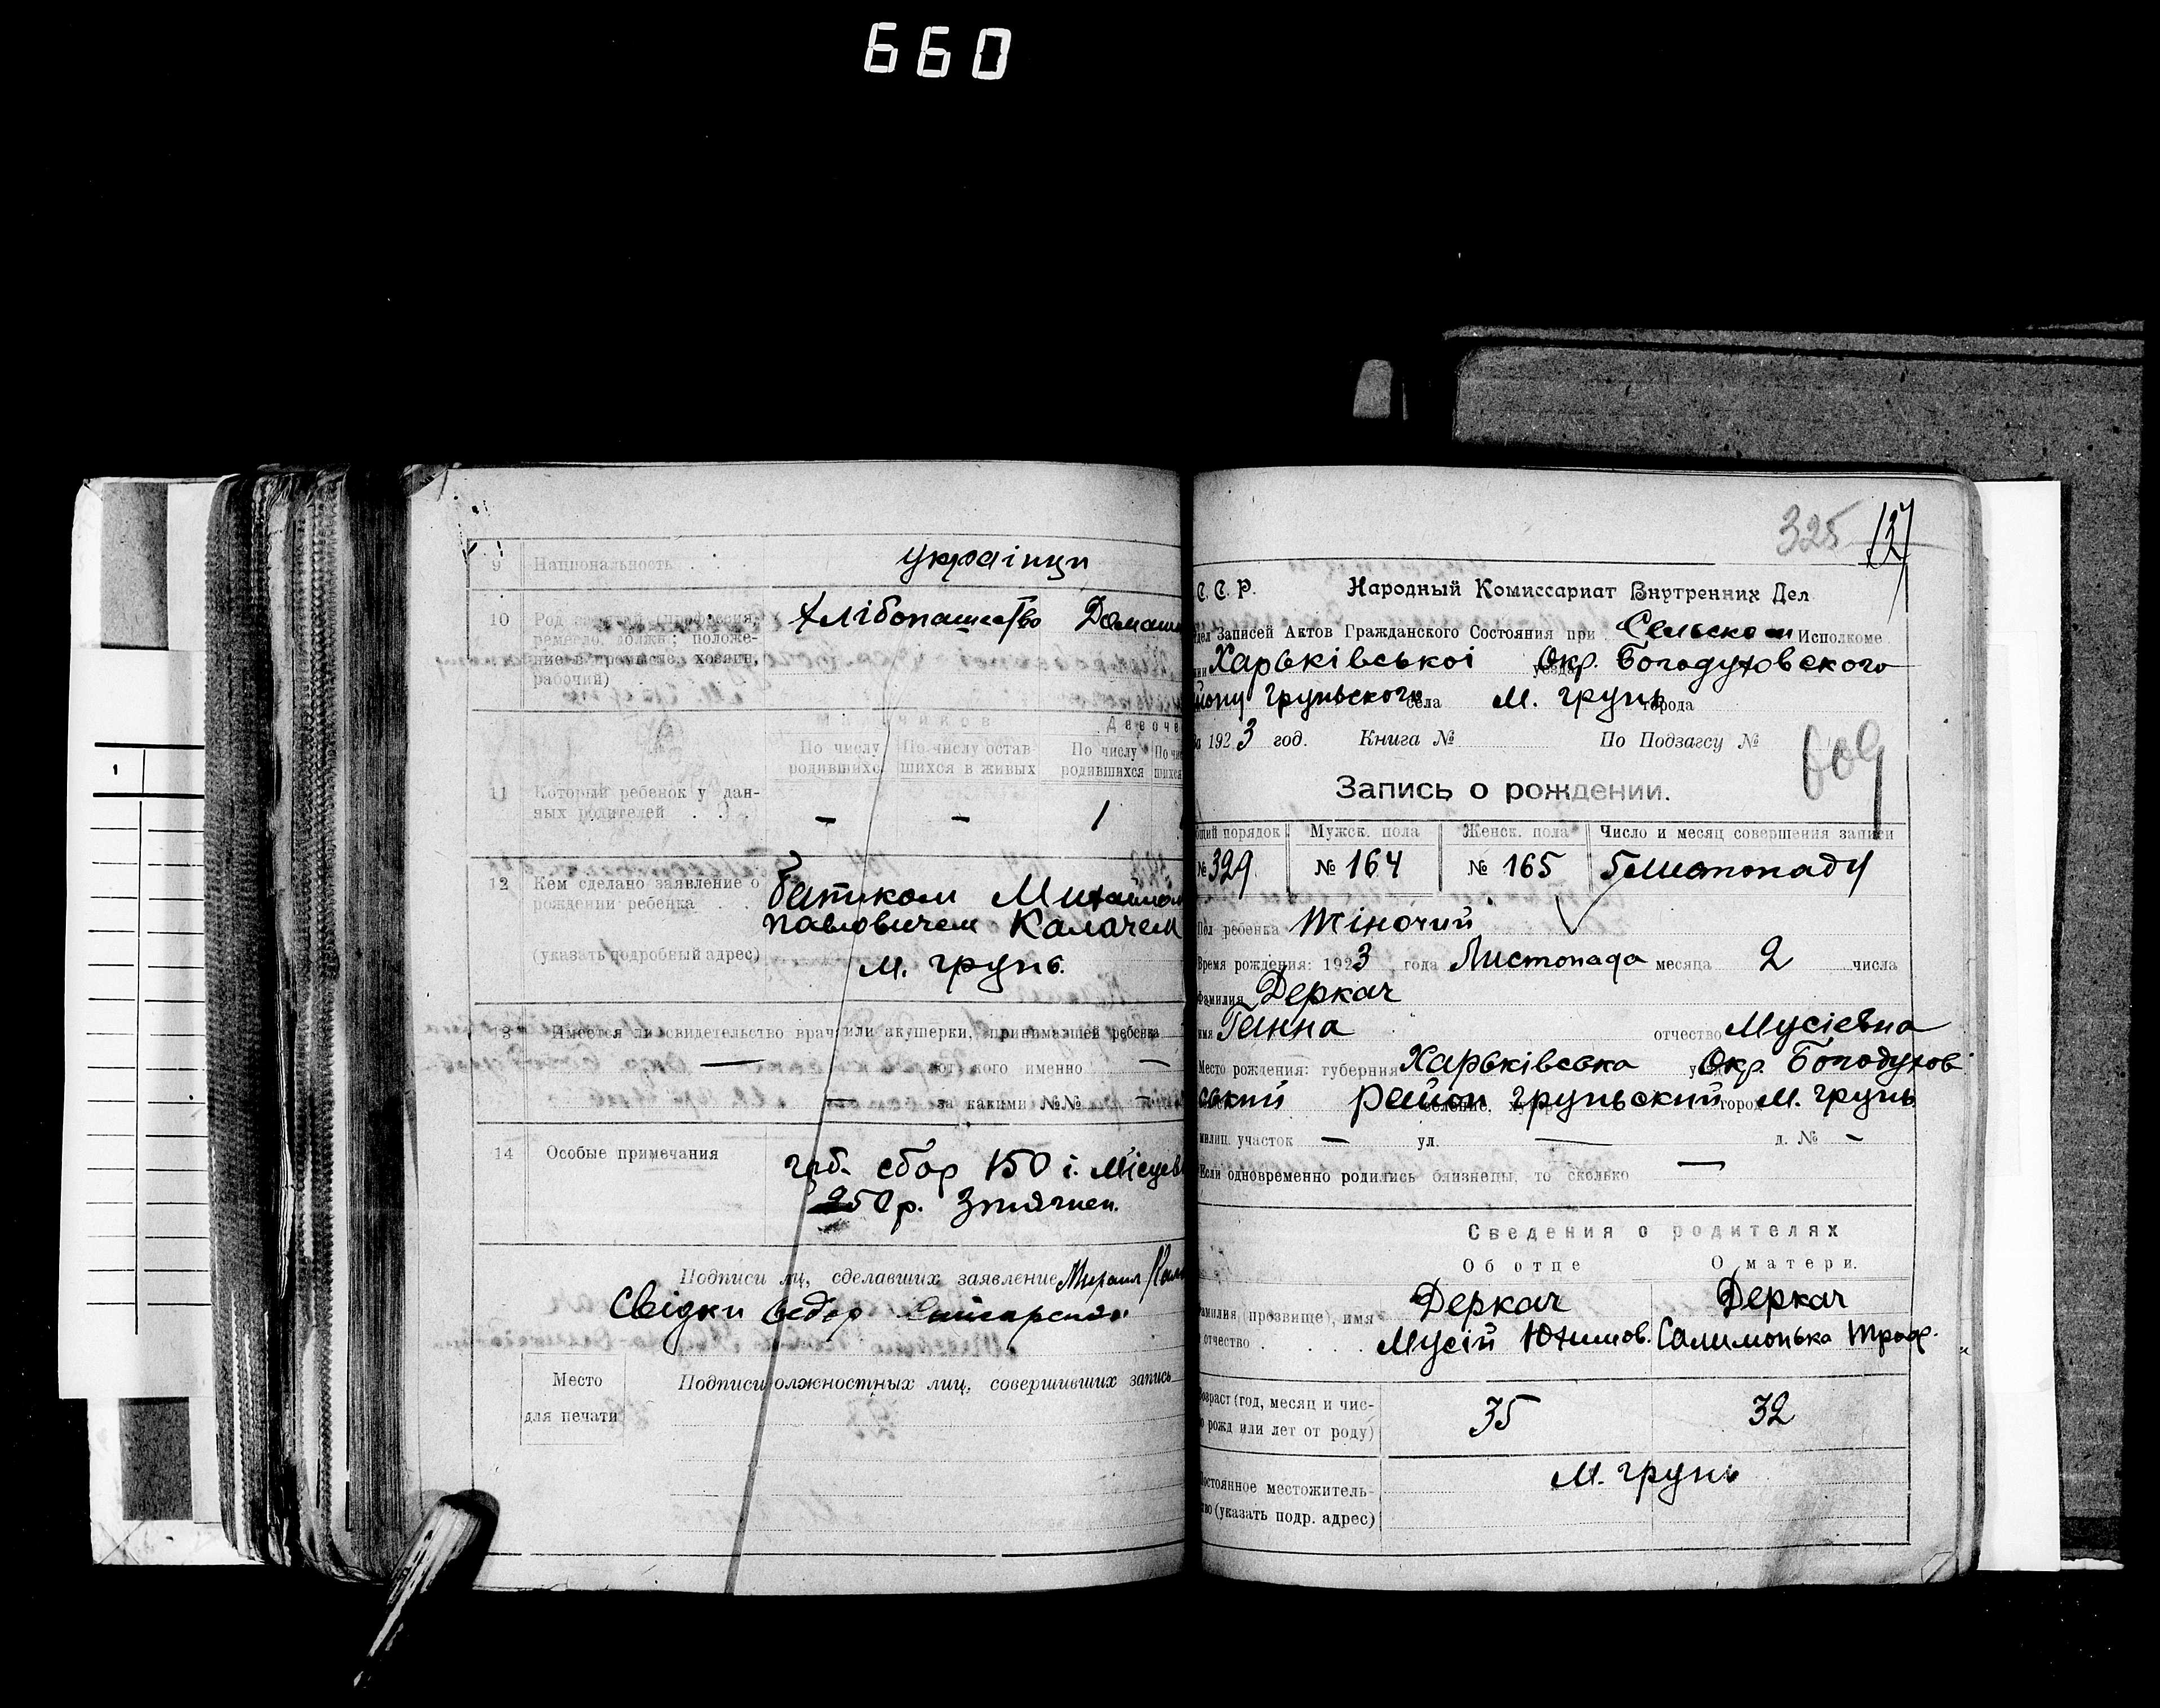 660
9 Национальность . . . українци
10 Род занятий (профессия, хлібопашество Домашн
ремесло, должн; положе-
ние в промысле, хозяин,
рабочий)
Мальчиков Девоче
По числу По числу остав- По числу По чи
родившихс шихся в живых родившихся шихся
11 Который ребенок у дан-
ных родителей . . . – – 1
12 Кем сделано заявление о батьком Михайлом
рождении ребенка . . Павловичем Калачем
(указать подробный адрес) м. грунь.
13 Имеется ли свидетельство врача или акушерки, принимавшей ребенка
— от кого именно —
— за какими №№ —
14 Особые примечания сбор 150 і. Місцев
250 р.
Подписи лиц, сделавших заявление Михаил Кала
Свідки Федор
Место Подписи должностных лиц, совершивших запись
для печати
325 137
С. С. Р. Народный Комиссариат Внутренних Дел
дел Записей Актов Гражданского Состояния при Сельском Исполкоме
нии Харьківськоі уезда Окр. Богодуховского
йону Груньского села м. грунь города
За 1923 год. Книга № По Подзагсу №
609
Запись о рождении.
щий порядок Мужск. пола Женск. пола Число и месяц совершения записи
№ 329 № 164 № 165 5 листопаду
Пол ребенка Жіночий
Время рождения: 1923 года Листопада месяца 2 числа
Фамилия Деркач
имя Ганна отчество Мусіевна
Место рождения: губерния Харьківська Окр. Богодухов
ський район груньский город м. грунь
милиц. участок — ул. — д. № —
Если одновременно родились близнецы, то сколько —
Сведения о родителях
Об отце О матери.
Деркач Деркач
амилия (прозвище), имя
отчество . . . . Мусій Юхимов. Салимонька Троф.
озраст (год, месяц и чис-
о рожд или лет от роду) 35 32
остоянное местожитель- м. грунь
во (указать подр. адрес)